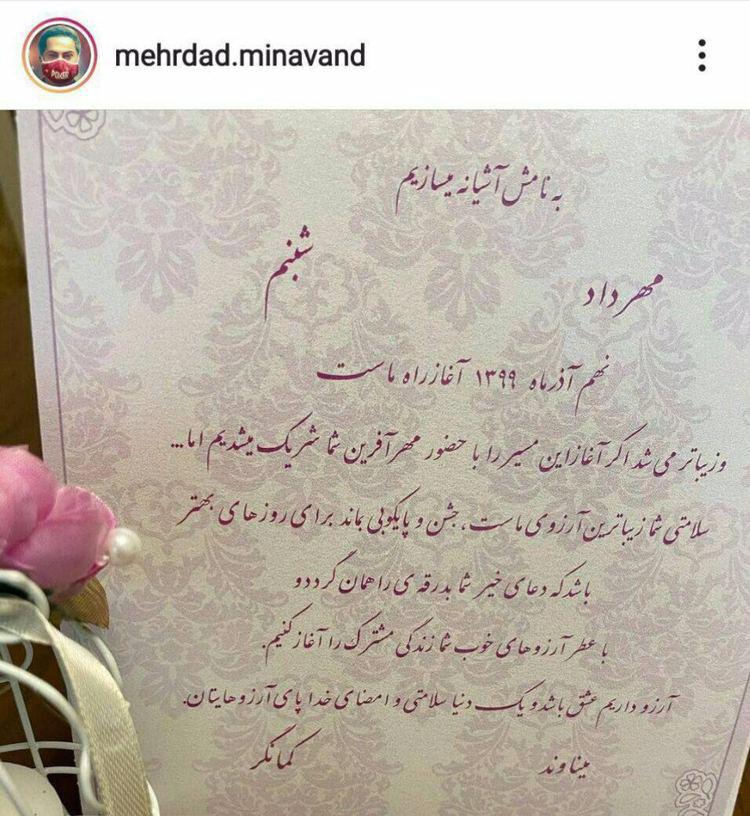 mehrdad.minavand
به نامش آشیانه میسازیم
شبنم
مهرداد
نهم آذرماه ۱۳۹۹ آغاز راه ماست
وزیباتر می شد اگر آغاز این مسیر را با حضور مهرآفرین شما شریک میشدیم اما...
سلامتی شما زیباترین آرزوی ماست، جشن و پایکوبی بماند برای روزهای بهتر
باشد که دعای خیر شما بدرقه ی راهمان گردد و
با عطر آرزوهای خوب شما زندگی مشترک را آغاز کنیم.
آرزو داریم عشق باشد و یک دنیا سلامتی و امضای خدا پای آرزوهایتان.
میناوند
کمانگر